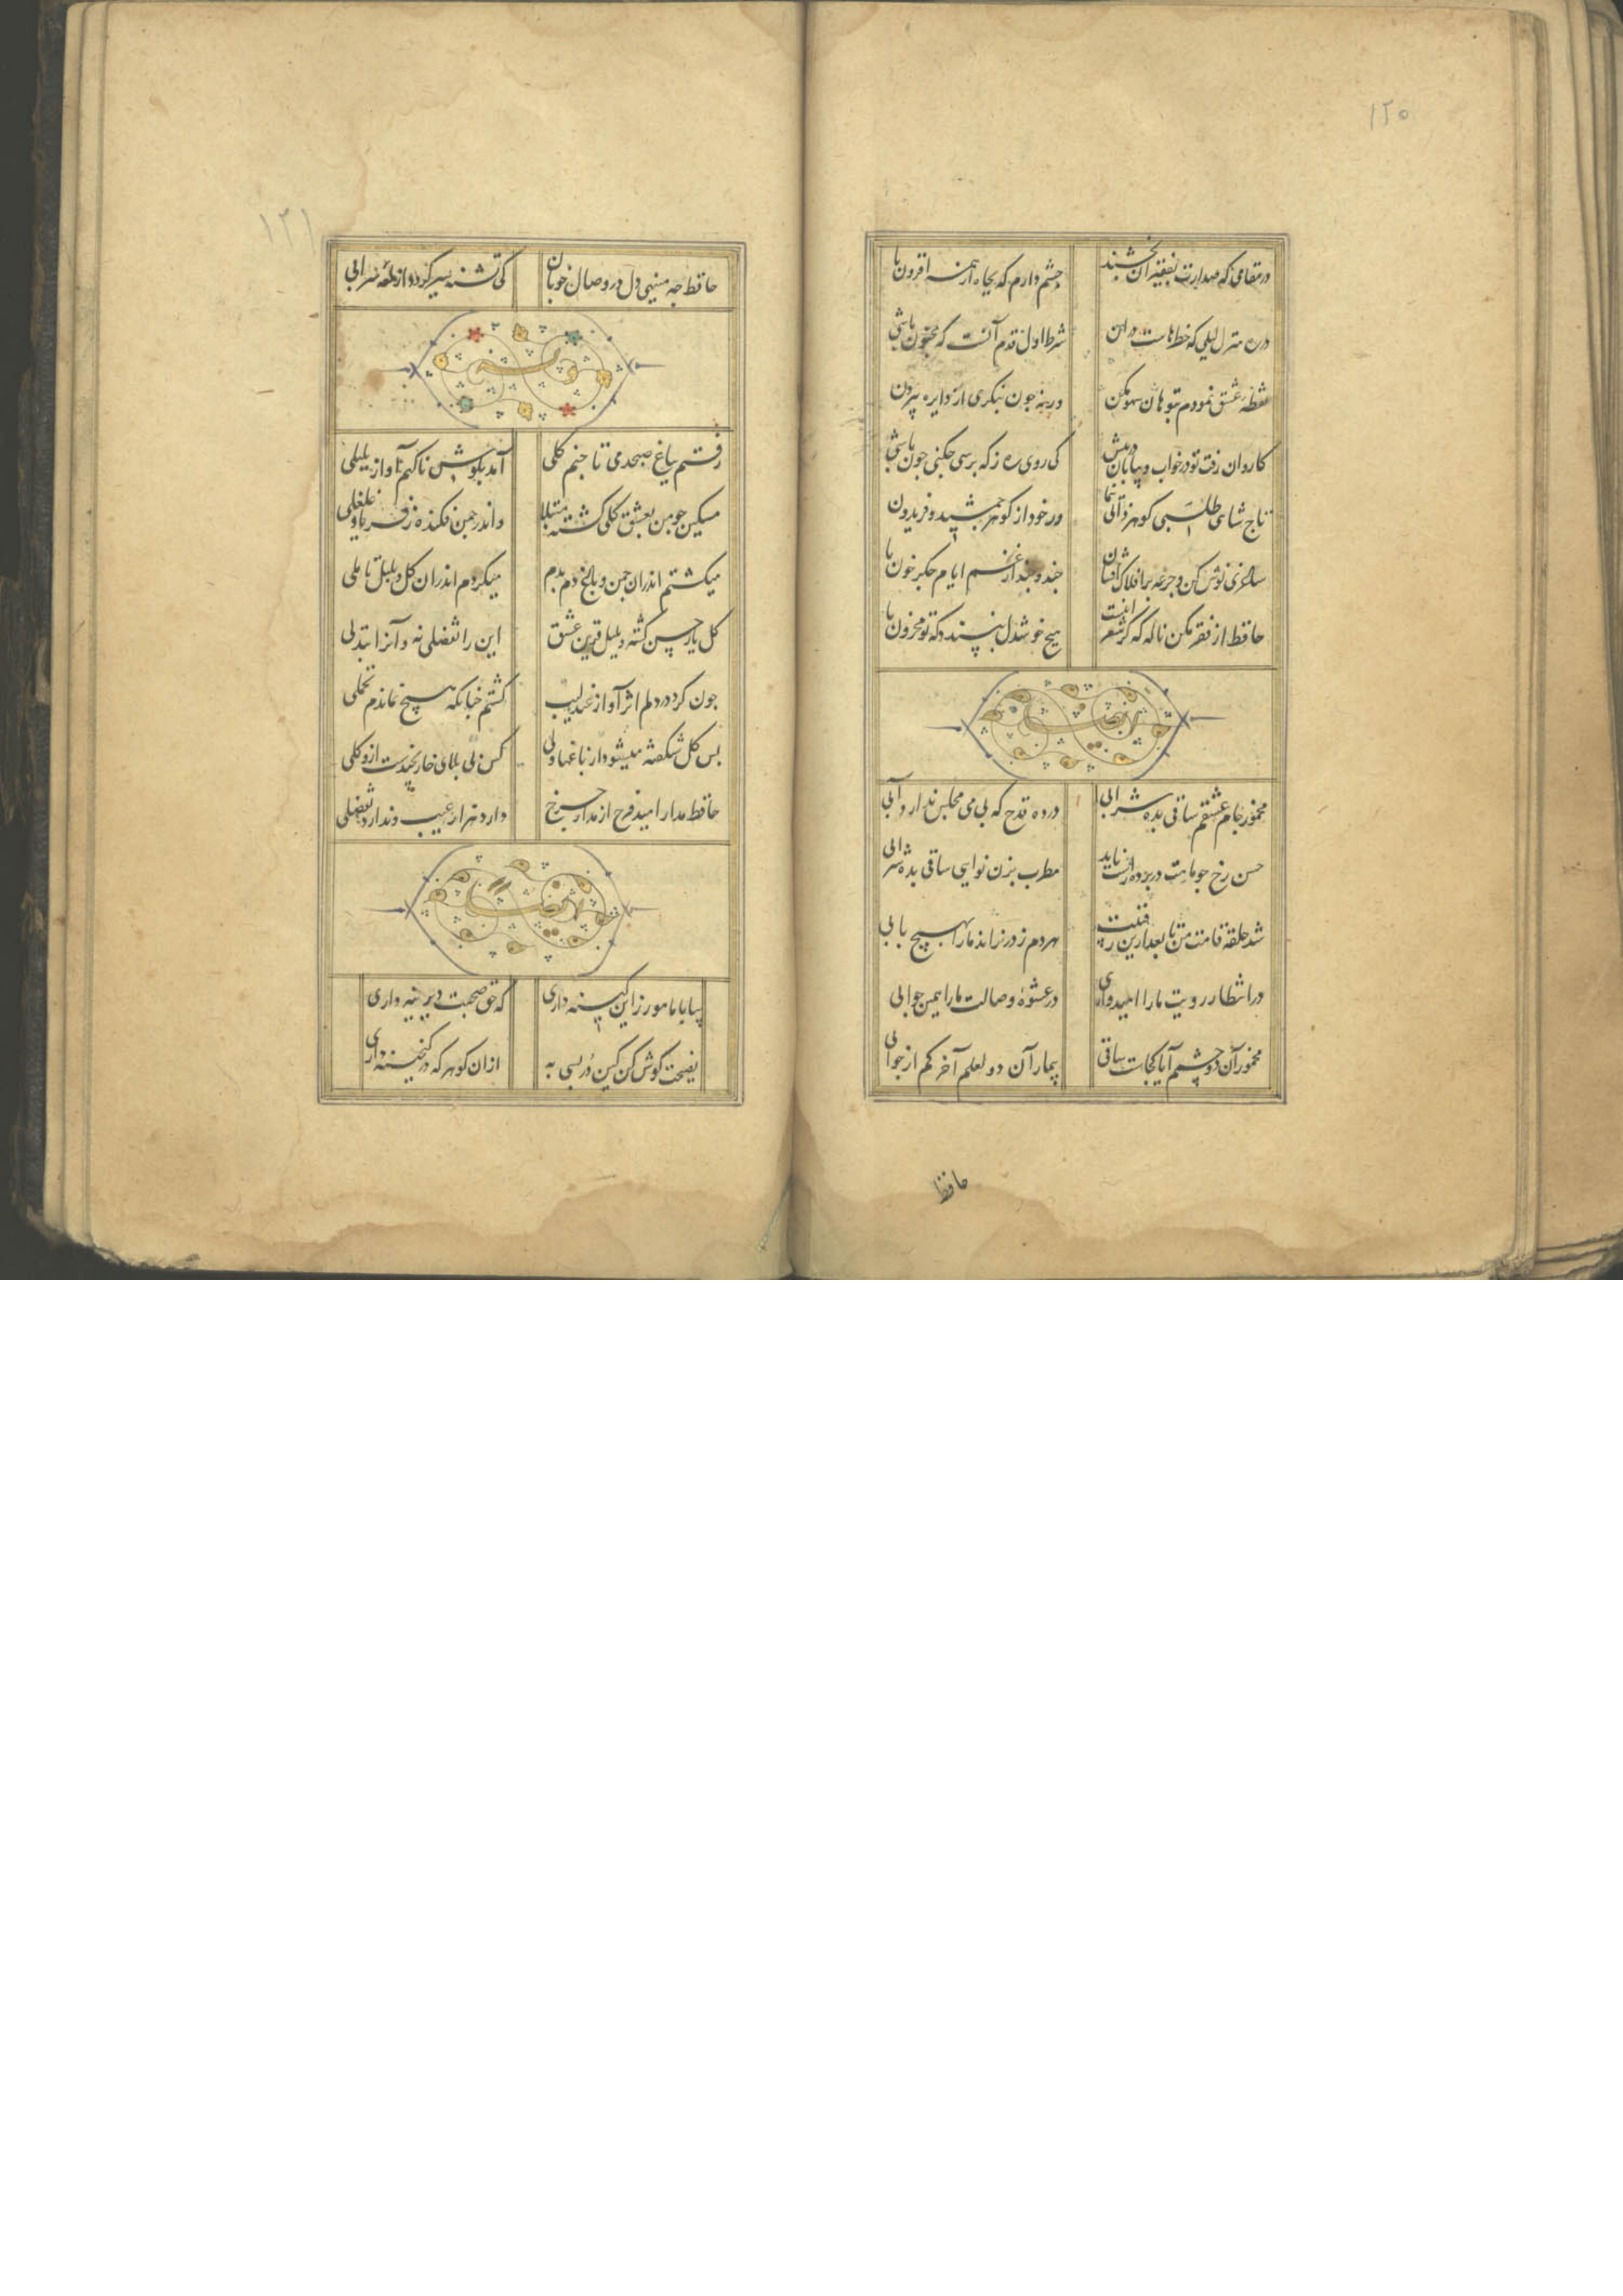 ۱۲۵
در مقامی که صدارت بفقیران بخشند چشم دارم که بجاه از همه افزون با
در ره منزل لیلی که خطرهاست در آن شرط اول قدم آنست که مجنون باشی
نقطه عشق نمودم بتو هان سهو مکن ورنه چون بنگری از دایره بیرون
کاروان رفت تو در خواب و بیابان در پیش کی روی ره ز که پرسی چکنی چون باشی
تاج شاهی طلبی گوهر ذاتی بنما ور خود از گوهر جمشید و فریدون
ساغری نوش کن و جرعه بر افلاک افشان چند و چند از غم ایام جگر خون با
حافظ از فقر مکن ناله که گر شعر اینست هیچ خوشدل نپسندد که تو محزون با
مخمور جام عشقم ساقی بده شرابی در ده قدح که بی می مجلس ندارد آبی
حسن رخ چو ماهت در پرده راست ناید مطرب بزن نوایی ساقی بده شرابی
شد حلقه قامت من تا بعد ازین رقیبت هر دم ز در نراند ما را بهیچ بابی
در انتظار رویت ما را امیدواری در عشوه وصالت ما را همین جوابی
مخمور آن دو چشم آیا کجاست ساقی بیمار آن دو لعلم آخر کم از جوابی
حافظ
۱۲۱
حافظ چه مینهی دل در وصال خوبان کی تشنه سیر گردد از لمعه سرابی
رفتم بباغ صبحدمی تا چنم گلی آمد بگوش ناگهم آواز بلبلی
مسکین چو من بعشق گلی گشته مبتلا واندر چمن فکنده ز فریاد غلغلی
میگشتم اندران چمن و باغ دم بدم میکردم اندران گل و بلبل تاملی
گل یار حسن گشته و بلبل قرین عشق این را تفضلی نه و آنرا تبدلی
چون کرد در دلم اثر آواز عندلیب گشتم چنانکه هیچ نماندم تحملی
بس گل شکفته میشود از باغها ولی کس بی بلای خار نچیدست ازو گلی
حافظ مدار امید فرح از مدار چرخ دارد هزار عیب و ندارد تفضلی
بیا با ما مورز این کینه داری که حق صحبت دیرینه داری
نصیحت گوش کن کین در بسی به از ان گوهر که در گنجینه داری